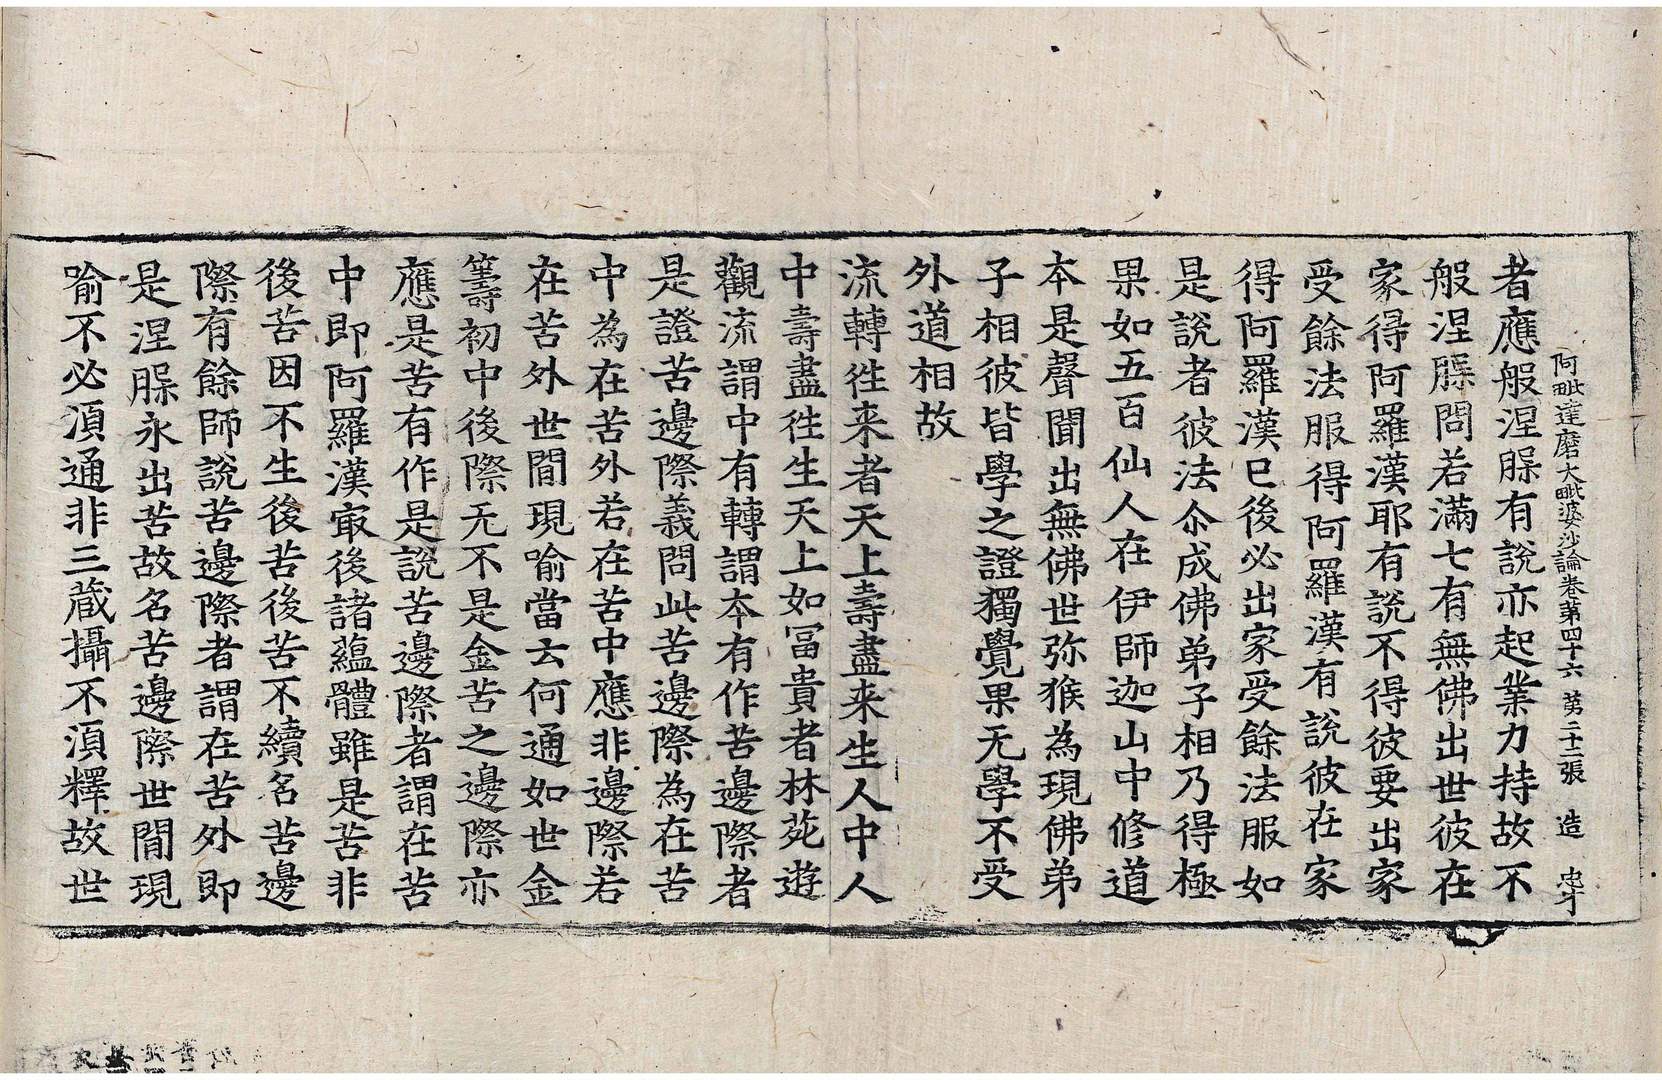 阿毗達磨大毗婆沙論卷第四十六 第二十二張 造 忠才
者應般涅槃有說亦起業力持故不
般涅槃問若滿七有無佛出世彼在
家得阿羅漢耶有說不得彼要出家
受餘法服得阿羅漢有說彼在家
得阿羅漢已後必出家受餘法服如
是說者彼法尒成佛弟子相乃得極
果如五百仙人在伊師迦山中修道
本是聲聞出無佛世弥猴為現佛弟
子相彼皆學之證獨覺果无學不受
外道相故
流轉徃来者天上壽盡来生人中人
中壽盡徃生天上如冨貴者林苑遊
觀流謂中有轉謂本有作苦邊際者
是證苦邊際義問此苦邊際為在苦
中為在苦外若在苦中應非邊際若
在苦外世間現喻當云何通如世金
籌初中後際无不是金苦之邊際亦
應是苦有作是說苦邊際者謂在苦
中即阿羅漢㝡後諸蘊體雖是苦非
後苦因不生後苦後苦不續名苦邊
際有餘師說苦邊際者謂在苦外即
是涅槃永出苦故名苦邊際世間現
喻不必湏通非三蔵攝不湏釋故世